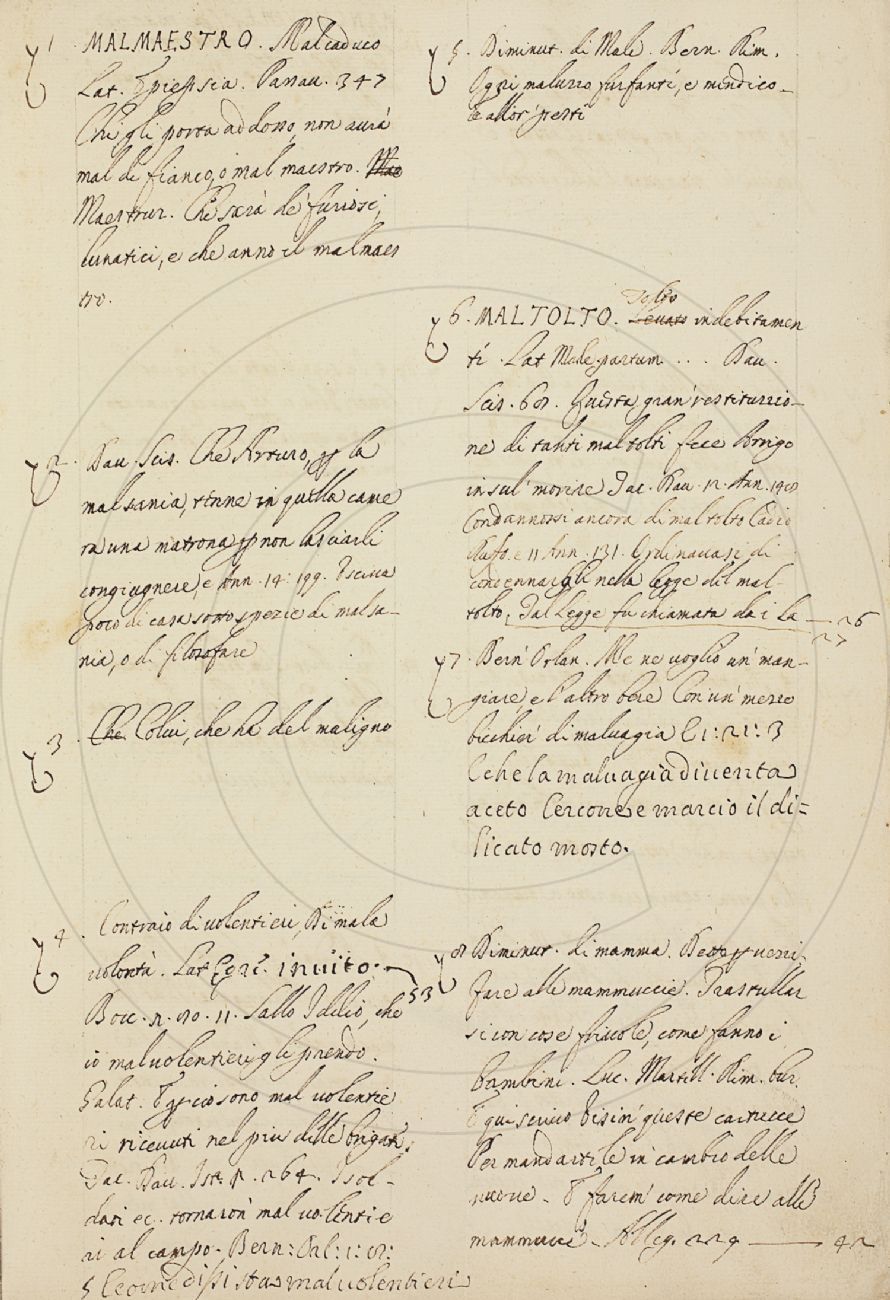 1. MALMAESTRO. Malcaduco
Lat. Epilepsia. Pataff. 347
Chi gli porta addosso, non avrà
mal di fianco, o mal maestro.
Maestruz. Che sarà de' furiosi,
lunatici, e che anno il malmaes
tro.
2. Dav. Scis. Che Arturo, per la
malsania, tenne in quella came
ra una matrona per non lasciarli
congiugnere, e Ann. 14. 199. Usciva
poco di casa sotto spezie di malsa-
nia, o di filosofare
3. Che Colui, che ha del maligno
4. Contraio di volentieri, Di mala
volontà. Lat. invito. 53
Bocc. n. 90. 11. Sallo Iddio, che
io mal volentieri gli prendo.
Galat. sono mal volentie
ri ricevuti nel più delle brigate.
Tac. Dav. Ist. 264. I sol-
dati ec. tornaron mal volentie
ri al campo. Bern: Orl: 1:
5 mal volentieri
5. Diminut. di Male. Bern. Rim.
Ogni maluzzo furfante, e mendico
è allor peste
6. MALTOLTO. Levato Tolto indebitamen
te. Lat. Male partum... Dav.
Scis. Questa gran restituzzio-
ne di tanti maltolti fece Arrigo
in sul morire Tac. Dav. 12. Ann.
Condannossi ancora di maltolto Cadio
Rufo. e 11 Ann. 131. Ordinavasi di
condennargli nella legge del mal-
tolto, Tal Legge fu chiamata da i La — 26
27
7. Bern. Orlan. Me ne voglio un man-
giare, e l'altro bere Con un mezzo
bicchier di malvagia E 1: 21: 3
E che la malvagia diventa
aceto Cercone e marcio il di=
licato mosto.
8 Diminut. di mamma.
fare alle mammuccie. Trastullar
si con cose frivole, come fanno i
bambini. Luc. Martell. Rim. bur.
E qui scrivo queste cartucce
Per mandartele in cambio delle
nuove. E farem come dire alle
mammucce. Alleg. 229 — 42